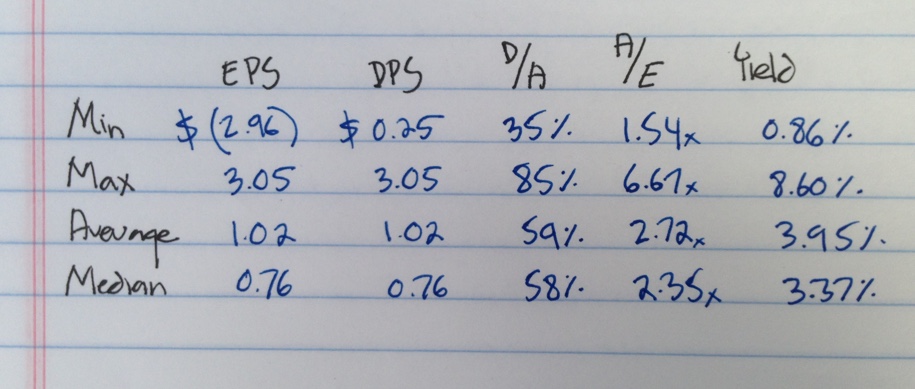 EPS DPS D/A A/E Yield
Min $ (2.96) $ 0.25 35% 1.54x 0.86%
Max 3.05 3.05 85% 6.67x 8.60%
Average 1.02 1.02 59% 2.72x 3.95%
Median 0.76 0.76 58% 2.35x 3.37%